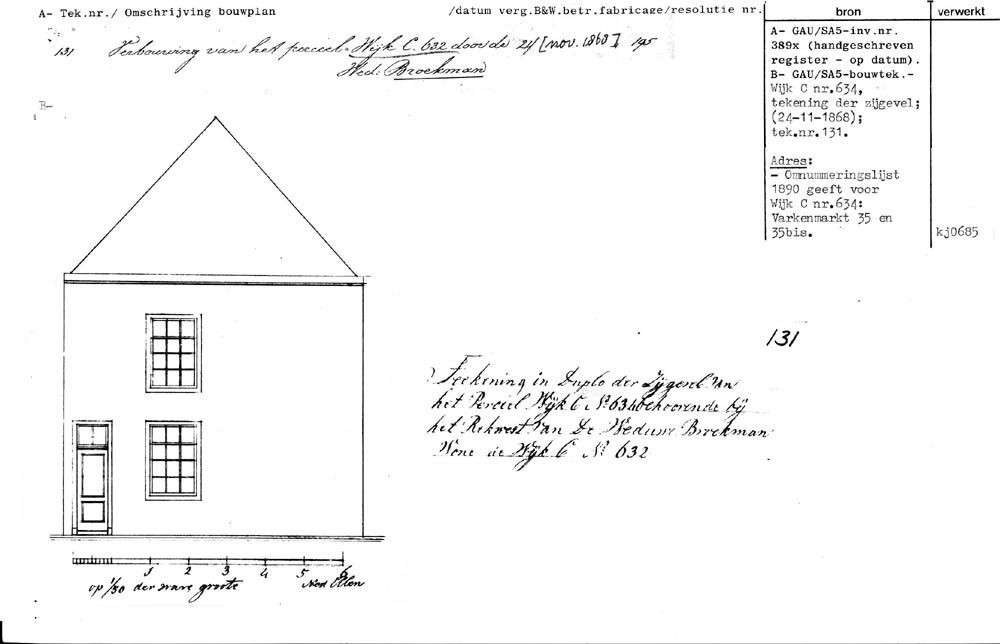 A- Tek.nr./ Omschrijving bouwplan /datum verg.B&W.betr.fabricage/resolutie nr.
bron
verwerkt
131 Verbouwing van het perceel Wijk C. 632 door de 24 [nov. 1868] 195
Wed: Broekman
A- GAU/SA5-inv.nr.
389x (handgeschreven
register - op datum).
B- GAU/SA5-bouwtek.-
Wijk C nr.634,
tekening der zijgevel;
(24-11-1868);
tek.nr.131.
Adres:
- Omnummeringslijst
1890 geeft voor
Wijk C nr.634:
Varkenmarkt 35 en
35bis.
kj0685
B-
131
Teekening in Duplo der Zijgevel van
het Perciel Wijk C No 634 behoorende bij
het Rekwest van De Weduwe Broekman
Wone de Wijk C No 632
1 2 3 4 5 6
op 1/50 der ware groote Ned Ellen